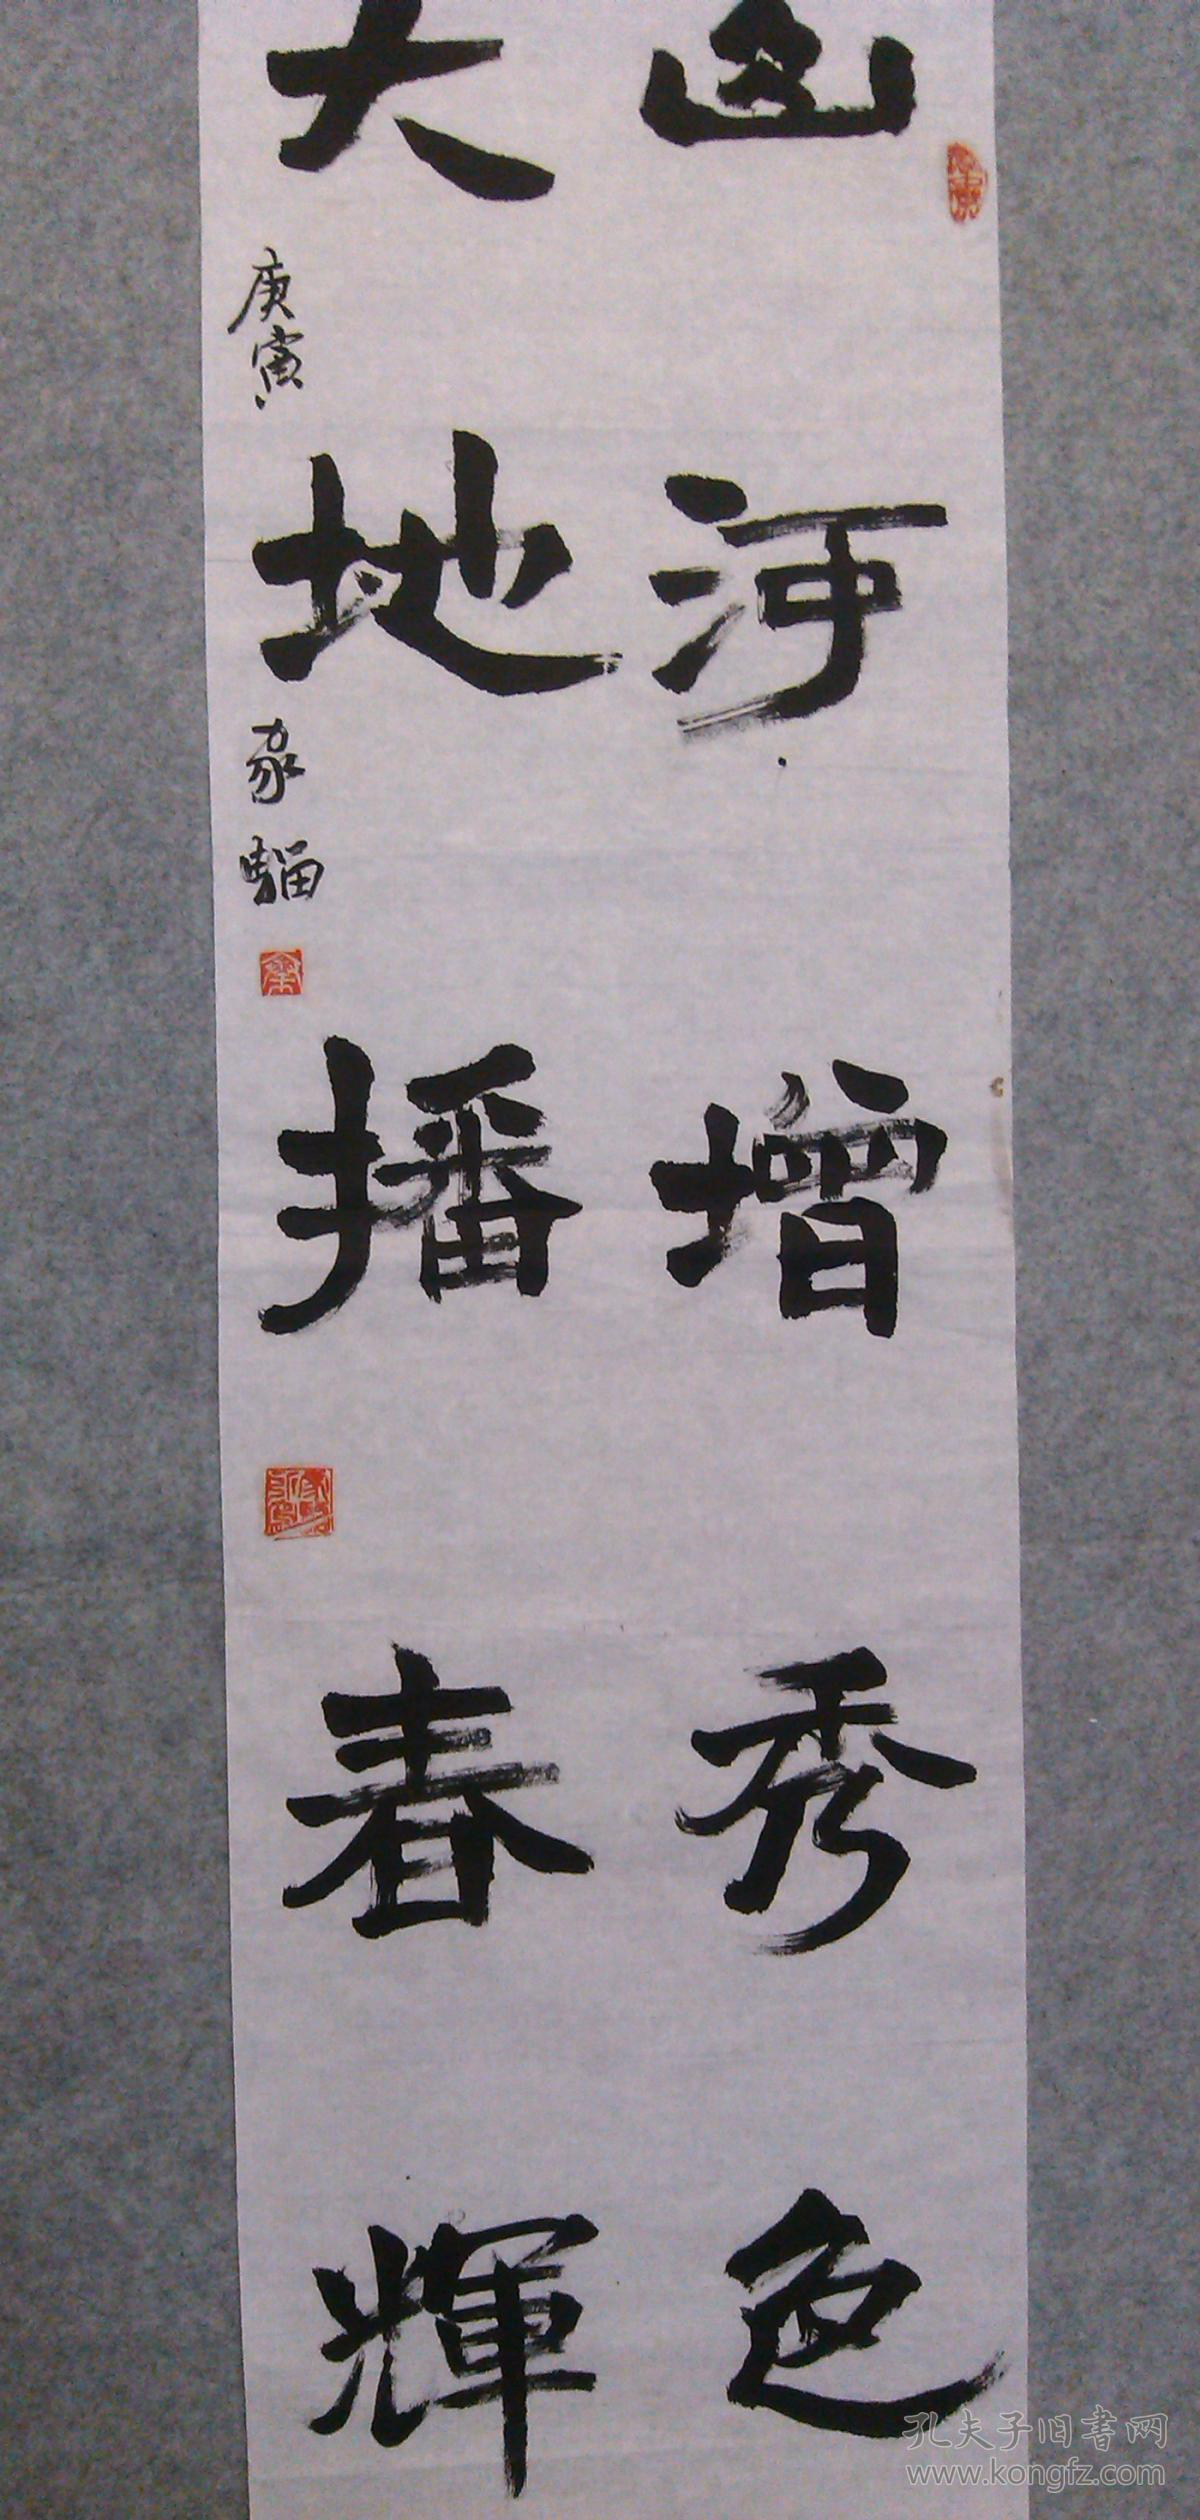 山河增秀色
大地播春輝
庚寅
孔夫子旧书网
www.kongfz.com